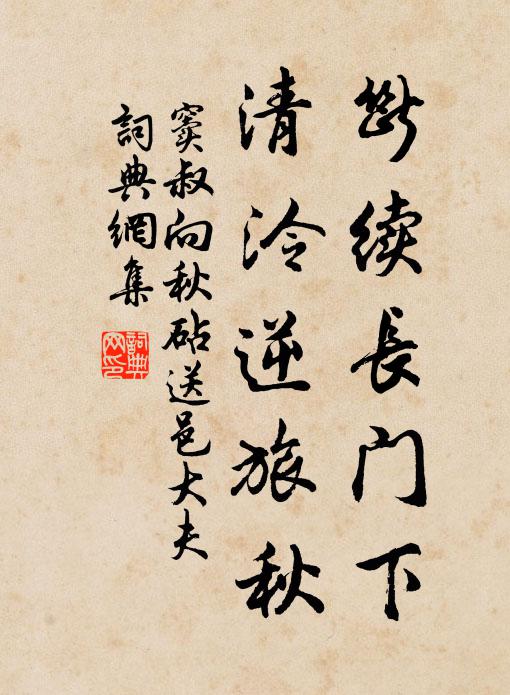 断续长门下
清泠逆旅秋
窦叔向秋砧送邑大夫
詞典網集
詞典网印